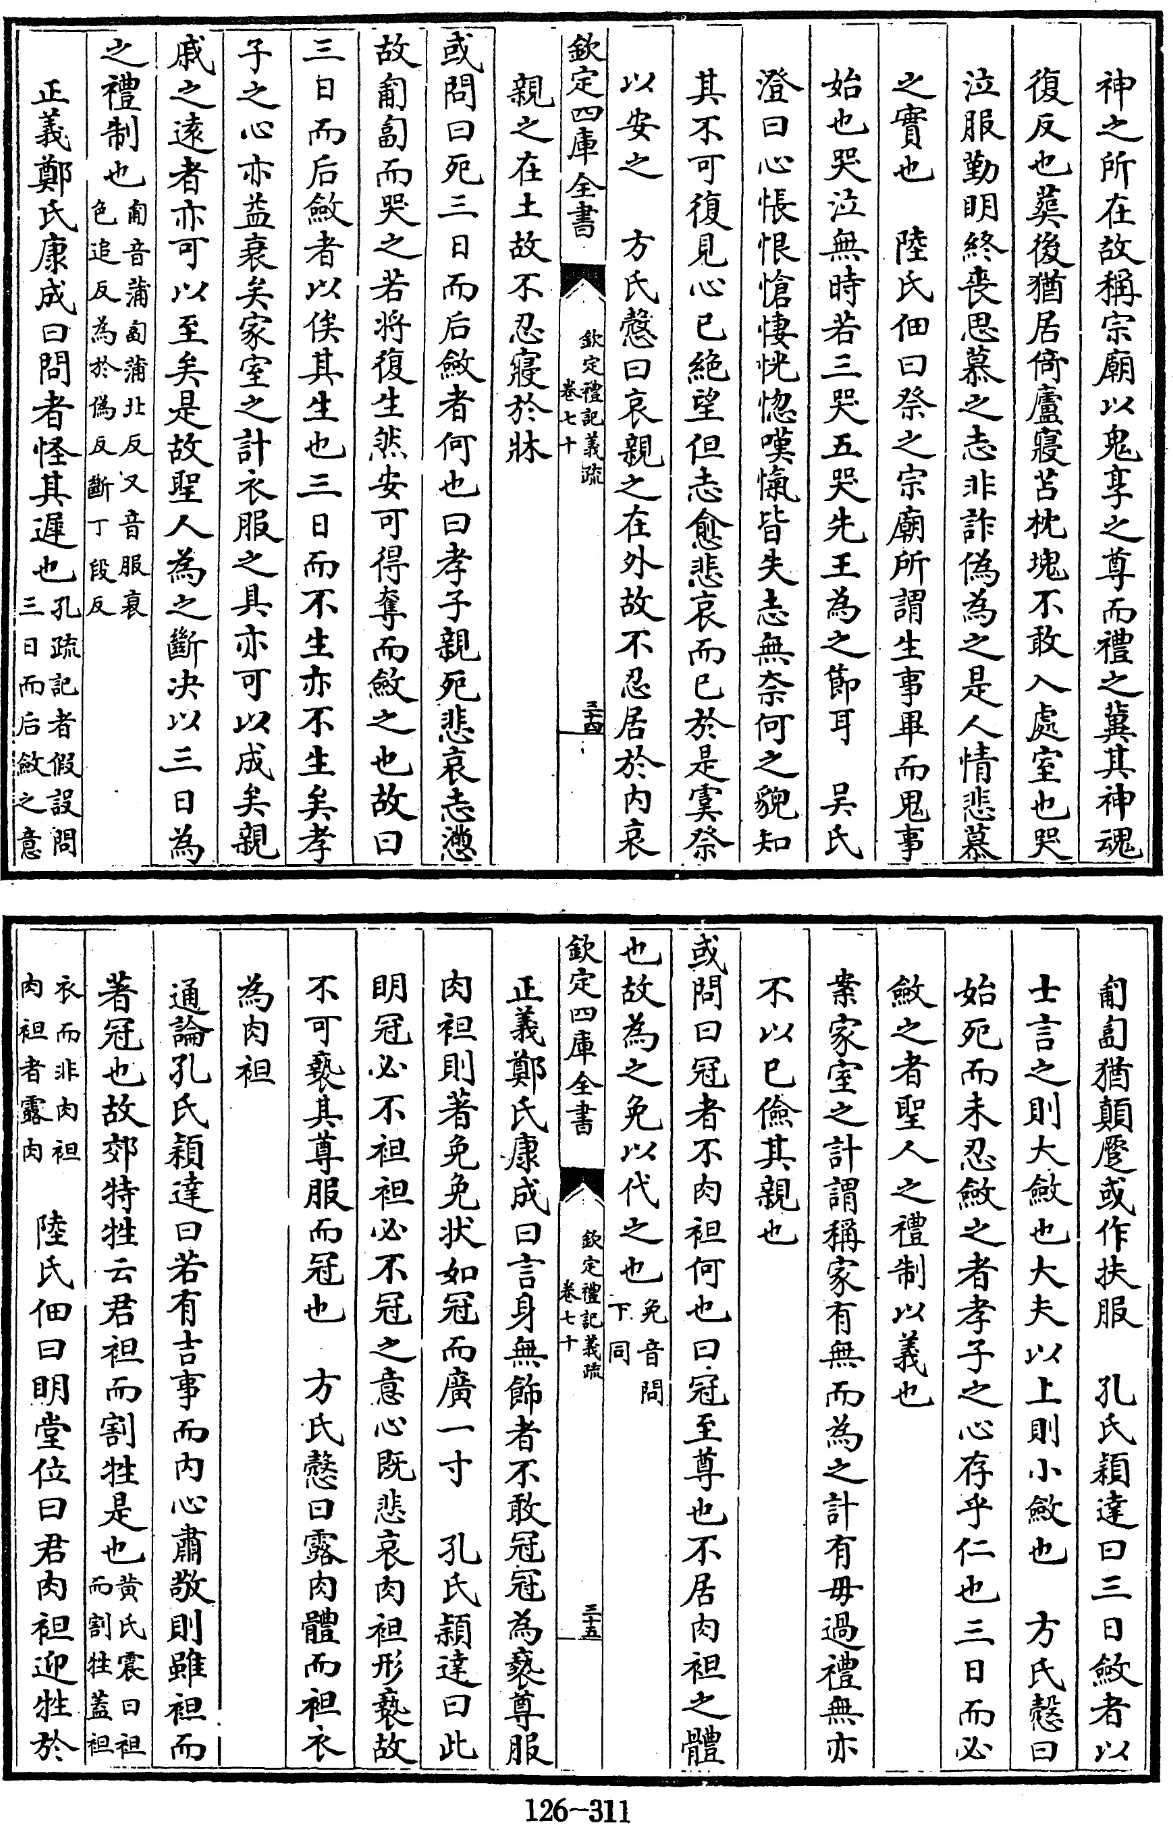 神之所在故稱宗廟以鬼享之尊而禮之冀其神魂
復反也葬後猶居倚廬寢苫枕塊不敢入處室也哭
泣服勤明終喪思慕之志非詐偽為之是人情悲慕
之實也　陸氏佃曰祭之宗廟所謂生事畢而鬼事
始也哭泣無時若三哭五哭先王為之節耳　吴氏
澄曰心悵恨愴悽恍惚嘆愾皆失志無奈何之貌知
其不可復見心已絶望但志愈悲哀而已於是虞祭
以安之　方氏慤曰哀親之在外故不忍居於内哀
欽定四庫全書
欽定禮記義疏
卷七十
三十四
親之在土故不忍寢於牀
或問曰死三日而后斂者何也曰孝子親死悲哀志懣
故匍匐而哭之若將復生然安可得奪而斂之也故曰
三日而后斂者以俟其生也三日而不生亦不生矣孝
子之心亦益衰矣家室之計衣服之具亦可以成矣親
戚之遠者亦可以至矣是故聖人為之斷决以三日為
之禮制也匍音蒲匐蒲北反又音服衰
色追反為於偽反斷丁段反
正義鄭氏康成曰問者怪其遲也孔疏記者假設問
三日而后斂之意
匍匐猶顛蹷或作扶服　孔氏穎達曰三日斂者以
士言之則大斂也大夫以上則小斂也　方氏慤曰
始死而未忍斂之者孝子之心存乎仁也三日而必
斂之者聖人之禮制以義也
案家室之計謂稱家有無而為之計有毋過禮無亦
不以已儉其親也
或問曰冠者不肉袒何也曰冠至尊也不居肉袒之體
也故為之免以代之也免音問
下同
欽定四庫全書
欽定禮記義疏
卷七十
三十五
正義鄭氏康成曰言身無飾者不敢冠冠為褻尊服
肉袒則著免免狀如冠而廣一寸　孔氏穎達曰此
明冠必不袒袒必不冠之意心既悲哀肉袒形褻故
不可褻其尊服而冠也　方氏慤曰露肉體而袒衣
為肉袒
通論孔氏穎達曰若有吉事而内心肅敬則雖袒而
著冠也故郊特牲云君袒而割牲是也黄氏震曰袒
而割牲蓋袒
衣而非肉袒
肉袒者露肉　陸氏佃曰明堂位曰君肉袒迎牲於
126-311